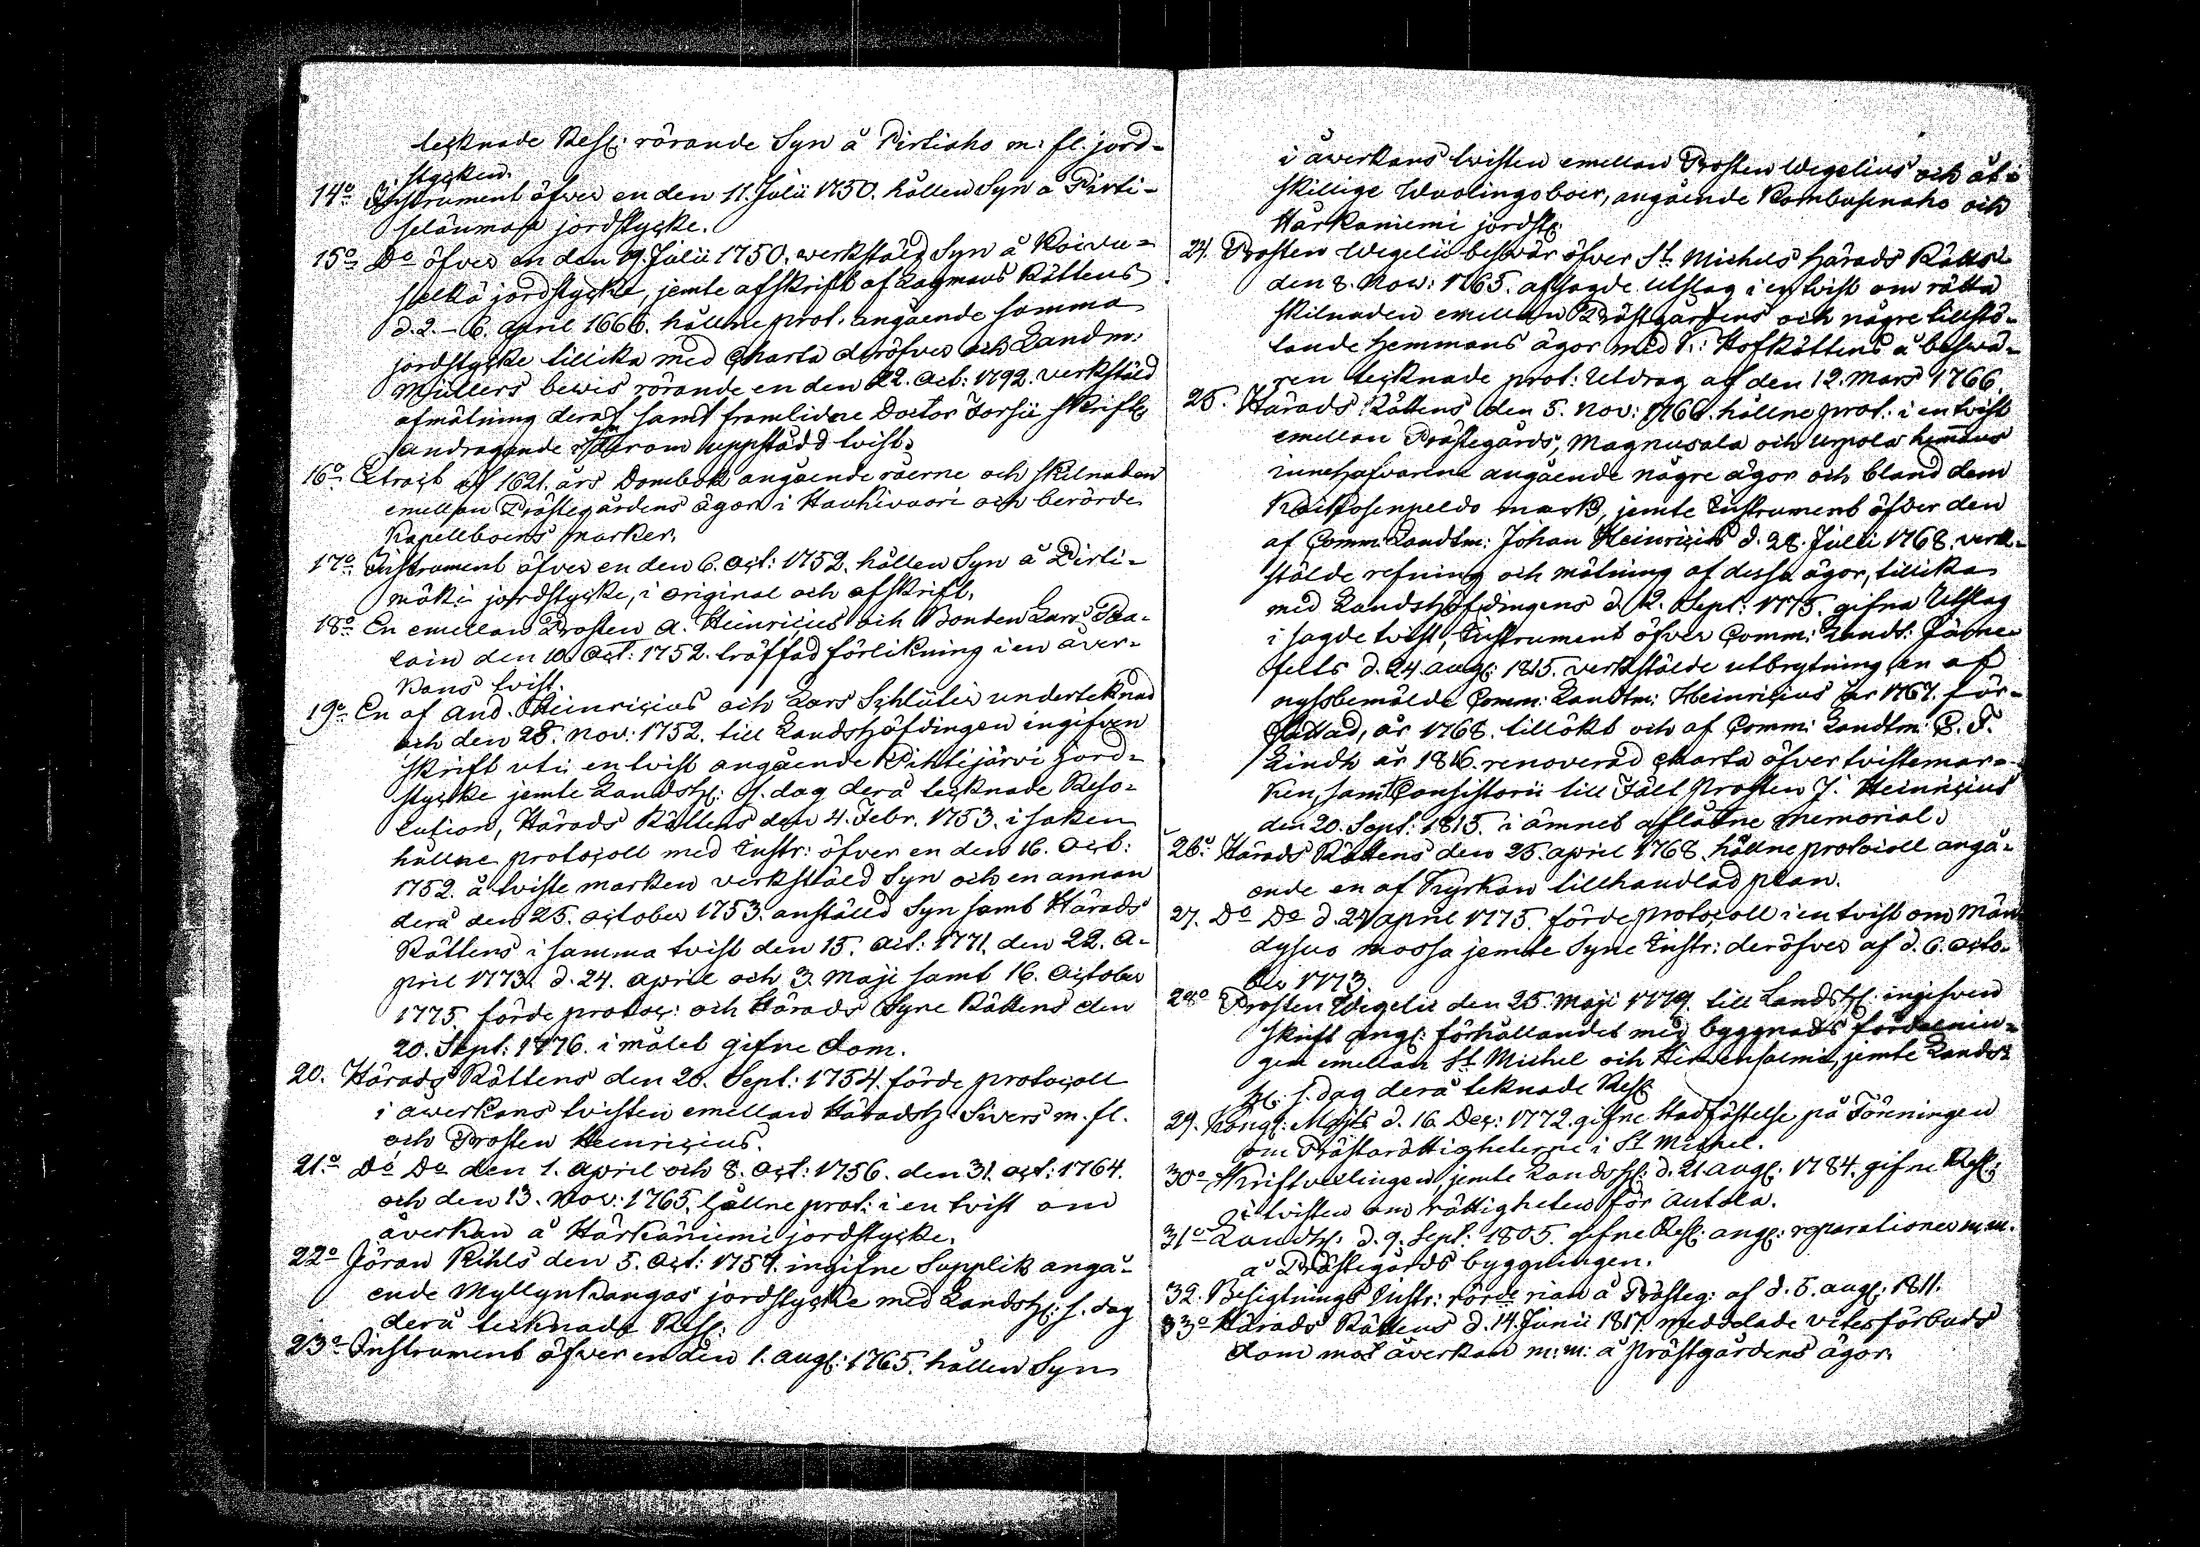 tecknade Resl: rörande Syn å Pirtiaho m: fl. jord-
stycken.
14o Instrument öfver en den 11. Julii 1750. hållen Syn å Pirti-
seläumaa jordstycke.
15o Do öfver en den 9. Julii 1750. verkstäld Syn å Koivu-
selkä jordstycke, jemte afskrift af Lagmans Rättens
d. 2. - 6. april 1666. hållne prot. angående samma
jordstycke tillika med Charta deröfver och Landm:
Müllers bewis rörande en den 22. Oct: 1792. verkstäld
afmätning deraf samt framlidne Doctor Forsii skrift
andragande om derom uppstådd tvist.
16o Extract af 1621. års Dombok angående råerne och skilnaden
emellan Prästegårdens ägor i Haukivuori och berörde
Kapellboers marker.
17o Instrument öfver en den 6. Oct: 1752. hållen Syn å Pirti-
mäki jordstycke, i original och afskrift.
18o En emellan Prosten A. Heinricius och Bonden Lars Paa-
lain den 10. Oct: 1752. träffad förlikning i en åver-
kans tvist.
19o En af And. Heinricius och Lars Schlüter underteknad
och den 28. Nov: 1752. till Landshöfdingen ingifven
skrift uti en tvist angående Pihtijärvi jord-
stycke jemte Landsh: s. dag derå tecknade Reso-
lution, Härads Rättens den 4. Febr. 1753. i saken
hållne protocoll med Instr: öfver en den 16. Oct:
1752. å tviste marken verkställd Syn och en annan
derå den 25. october 1753. anställd Syn samt Härads
Rättens i samma tvist den 15. Oct: 1771. den 22. A-
pril 1773. d. 24. april och 3. Maji samt 16. October
1775 förde protoc: och Härads Syne Rättens den
20. Sept: 1776. i målet gifne dom.
20. Härads Rättens den 20. Sept: 1754. förde protocoll
i awerkans tvisten emellan Häradsh: Sivers m. fl.
och Prosten Heinricius.
21.o Do Do den 1. April och 8. Oct: 1756. den 31. oct: 1764.
och den 13. Nov: 1765. hållne prot: i en tvist om
åverkan å Härkäniemi jordstycke.
22o Jöran Kihls den 5. Oct: 1759. ingifne Supplik angå-
ende Myllynkangas jordstycke med Landsh: s. dag
derå tecknade Resl:
23o Instrument öfver en den 1. augl: 1765. hållen Syn
i åverkans tvisten emellan Prosten Wegelius och åt-
skillige Wuolingoboer, angående Kombusenaho och
Härkäniemi jordst:
24. Prosten Wegelii beswär öfver St. Michels Härads Rätts
den 8. Nov: 1765. afsagde Utslag i en tvist om rätta
skilnaden emellan Prästgårdens och någre tillstö-
tande Hemmans ägor med K: Hofrättens å beswä-
ren tecknade prot: Utdrag af den 12. Mars 1766.
25. Härads Rättens den 5. Nov: 1766. hållne prot: i en tvist
emellan Prästegårds, Magnusala och Urpola hemmans
innehafvarena angående någre ägor och bland dem
mark, jemte Instrument öfver den
af Comm: Landtm: Johan Heinricius d. 28. Julii 1768. verk-
stälde refning och mätning af dessa ägor, tillika
med Landshöfdingens d. 12. Sept: 1775. gifna Utslag
i sagde tvist, Instrument öfver Comm: Landt: Järne-
felts d. 24 augl: 1815. verkstälde utbrytning, en af
nyssbemälde Comm: Landtm: Heinricius år 1767. för-
fattad, år 1768. tillökt och af Comm: Landtm: C. F.
Lindh år 1816. renoverad Charta öfver tvistemar-
ken, samt Consistorii till Fält Prosten J. Heinricius
den 20. Sept: 1815. i ämnet aflåtne Memorial.
26.o Härads Rättens den 25. april 1768. hållne protocoll angå-
ende en af Kyrkan tillhandlad plan.
27. Do Do d. 24 april 1775. förde protocoll i en tvist om Män-
dysuo mossa jemte Syne Instr: deröfver af d. 6. octo-
ber 1773.
28.o Prosten Wegelii den 25. Maji 1779. till Landsh: ingifven
skrift angl: förhållandet med byggnads fördelnin-
gen emellan St. Michel och Hirvensalmi, jemte Lands-
h: s. dag derå teknade Resl:
29. Kongl: Maj:ts d. 16. Dec: 1772. gifne Stadfästelse på Föreningen
om Prästarättigheterne i St. Michel.
30o Skriftvexlingen, jemte Landsh: d. 21. augl: 1784. gifne Resl:
i tvisten om rättigheten för Antola.
31o Landsh: d. 9. Sept: 1805. gifne Resl: angl: reparationer m.m.
å Prästegårds byggningen.
32. Besigtnings Instr: rörde rian å Prästeg: af d. 5. augl: 1811.
33o Härads Rättens d. 14. Junii 1817. meddelade vitesförbuds
dom mot åverkan m: m: å prästgårdens ägor.